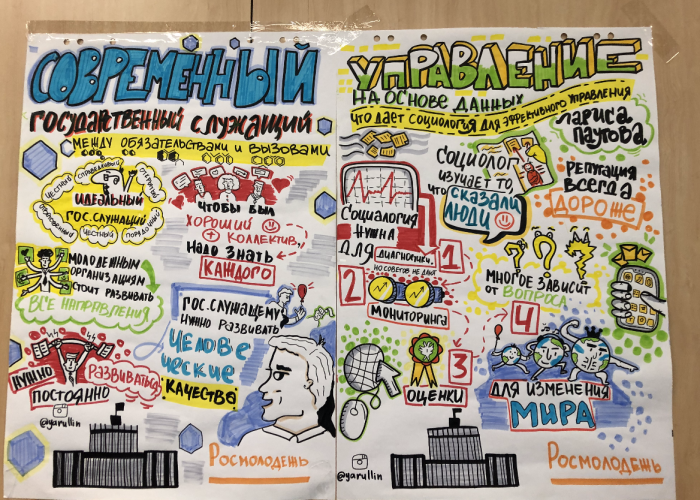 СОВРЕМЕННЫЙ
ГОСУДАРСТВЕННЫЙ СЛУЖАЩИЙ
МЕЖДУ ОБЯЗАТЕЛЬСТВАМИ И ВЫЗОВАМИ
ЧЕСТНЫЙ СПРАВЕДЛИВЫЙ
ИДЕАЛЬНЫЙ
ГОС.СЛУЖАЩИЙ
ЧЕСТНЫЙ
ЧТОБЫ БЫЛ
ХОРОШИЙ
КОЛЛЕКТИВ,
НАДО ЗНАТЬ
КАЖДОГО
МОЛОДЕЖНЫМ
ОРГАНИЗАЦИЯМ
СТОИТ РАЗВИВАТЬ
ВСЕ НАПРАВЛЕНИЯ
ГОС.СЛУЖАЩЕМУ
НУЖНО РАЗВИВАТЬ
ЧЕЛОВЕ
ЧЕСКИЕ
КАЧЕСТВО
НУЖНО РАЗВИВАТЬСЯ
ПОСТОЯННО
@yarullin
РОСМОЛОДЕЖЬ
УПРАВЛЕНИЕ
НА ОСНОВЕ ДАННЫХ
ЧТО ДАЕТ СОЦИОЛОГИЯ ДЛЯ ЭФФЕКТИВНОГО УПРАВЛЕНИЯ
ЛАРИСА
ПАУТОВА
СОЦИОЛОГ
ИЗУЧАЕТ ТО,
ЧТО СКАЗАЛИ
ЛЮДИ
РЕПУТАЦИЯ
ВСЕГДА
ДОРОЖЕ
СОЦИАЛОГИЯ
НУЖНА
ДЛЯ
ДИАГНОСТИКИ,
НО СОВЕТОВ НЕ ДАЮТ
1
2
МОНИТОРИНГА
МНОГОЕ ЗАВИСИТ
ОТ ВОПРОСА
3
ОЦЕНКИ
4
ДЛЯ ИЗМЕНЕНИЯ
МИРА
@yarullin
РОСМОЛОДЕЖЬ